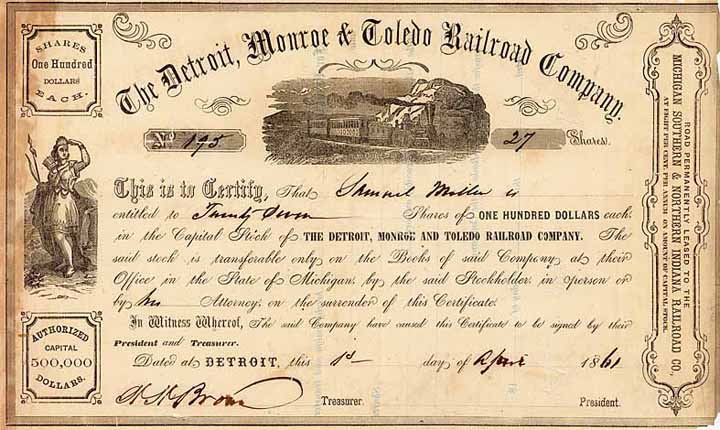 SHARES
One Hundred
DOLLARS
EACH.
The Detroit, Monroe & Toledo Railroad Company.
No. 195
27 Shares.
This is to Certify, That Samuel Miller is
entitled to Twenty Seven Shares of ONE HUNDRED DOLLARS each
in the Capital Stock of THE DETROIT, MONROE AND TOLEDO RAILROAD COMPANY. The
said stock is transferable only on the Books of said Company at their
Office in the State of Michigan, by the said Stockholder, in person or
by his Attorney, on the surrender of this Certificate.
In Witness Whereof, The said Company have caused this Certificate to be signed by their
President and Treasurer.
Dated at DETROIT, this 1st day of April 1861
Treasurer.
President.
AUTHORIZED
CAPITAL
500,000
DOLLARS.
ROAD PERMANENTLY LEASED TO THE
MICHIGAN SOUTHERN & NORTHERN INDIANA RAILROAD CO.,
AT EIGHT PER CENT. PER ANNUM ON AMOUNT OF CAPITAL STOCK.